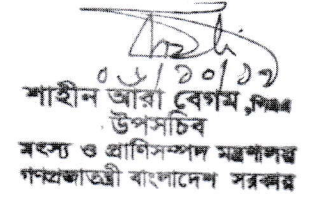 ০৬/১০/১৯
শাহীন আরা বেগম
উপসচিব
মৎস্য ও প্রাণিসম্পদ মন্ত্রণালয়
গণপ্রজাতন্ত্রী বাংলাদেশ সরকার